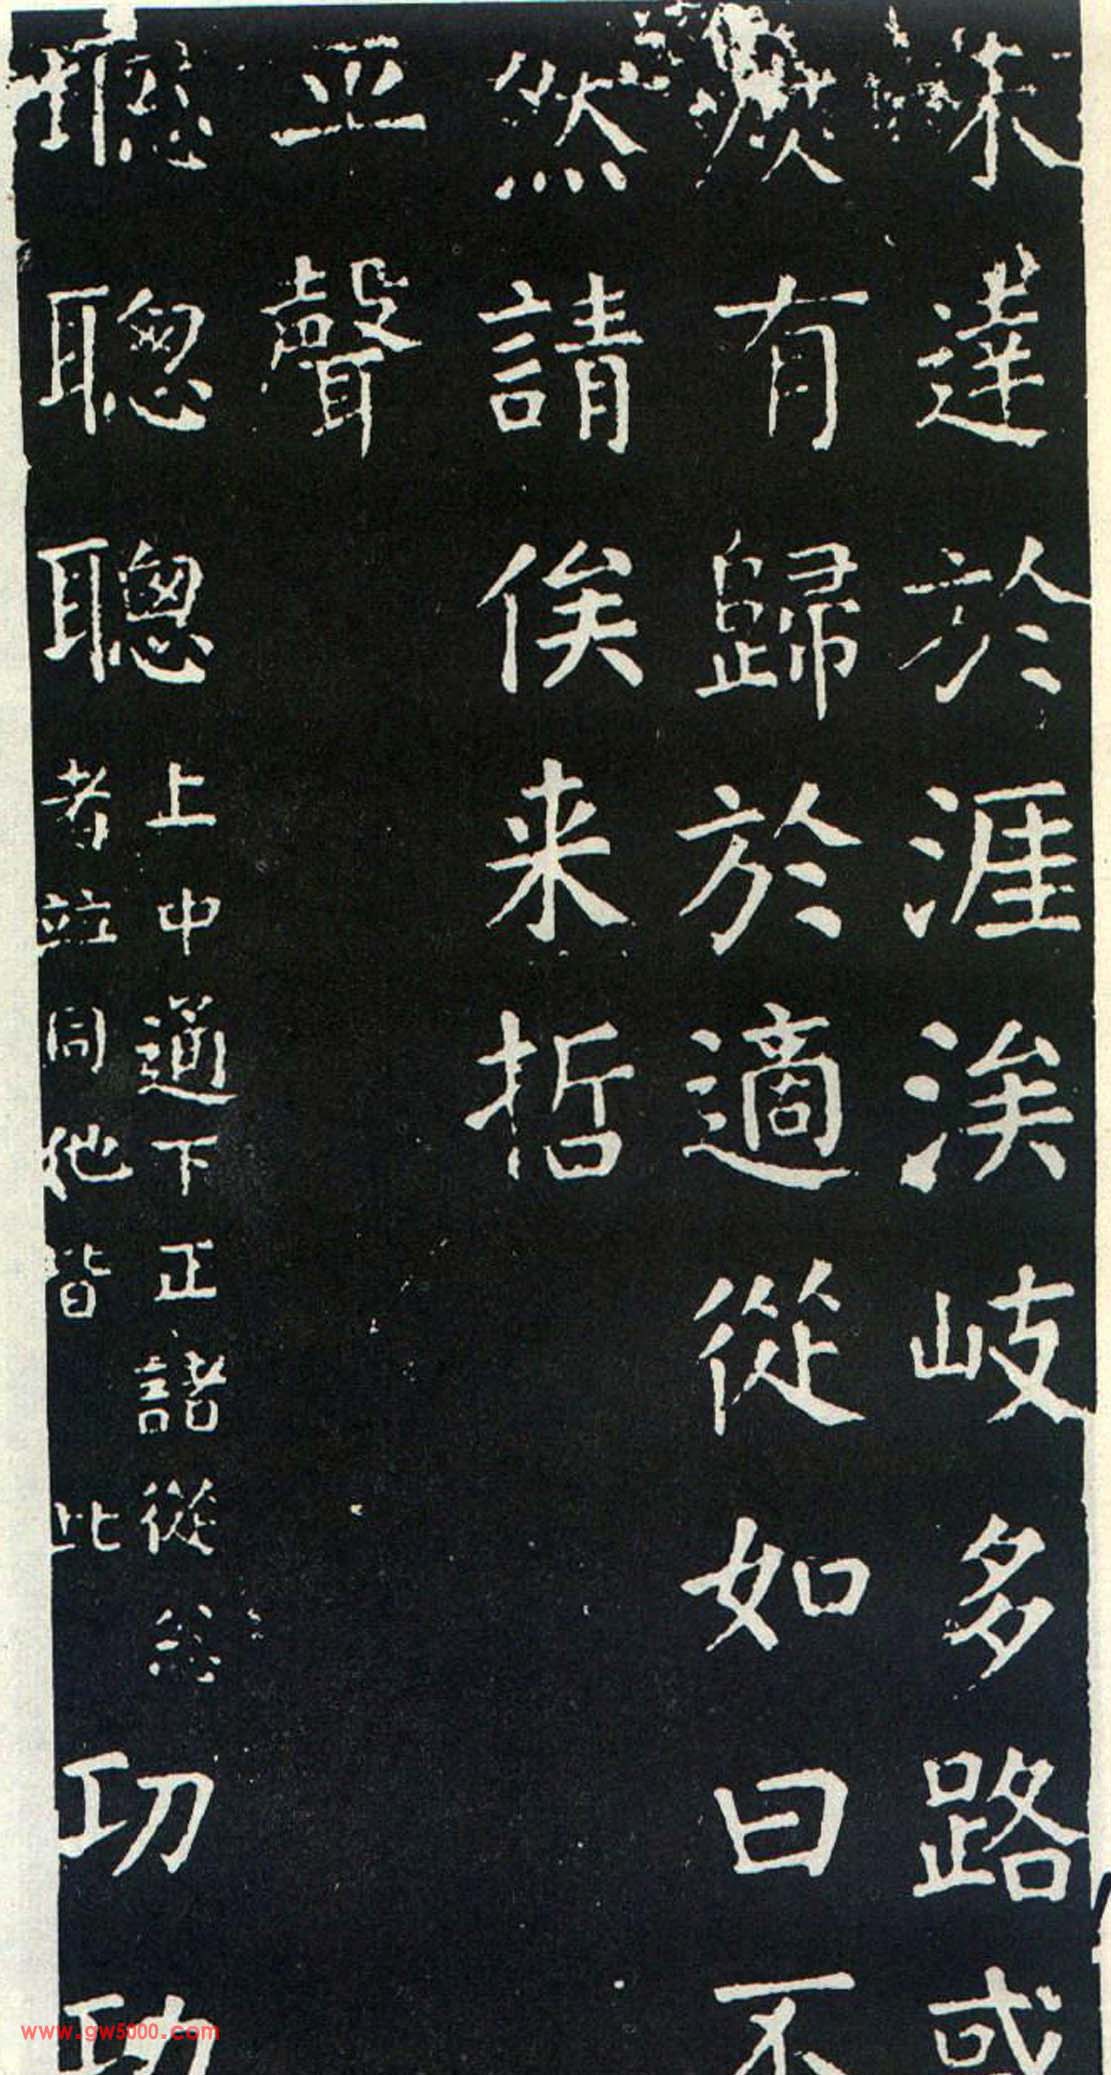 未達於涯涘岐多路或
有歸於適從如曰不
然請俟来哲
平聲
聦聰聡上中通下正諸從忩
者並同他皆 此
功
www.gw5000.com